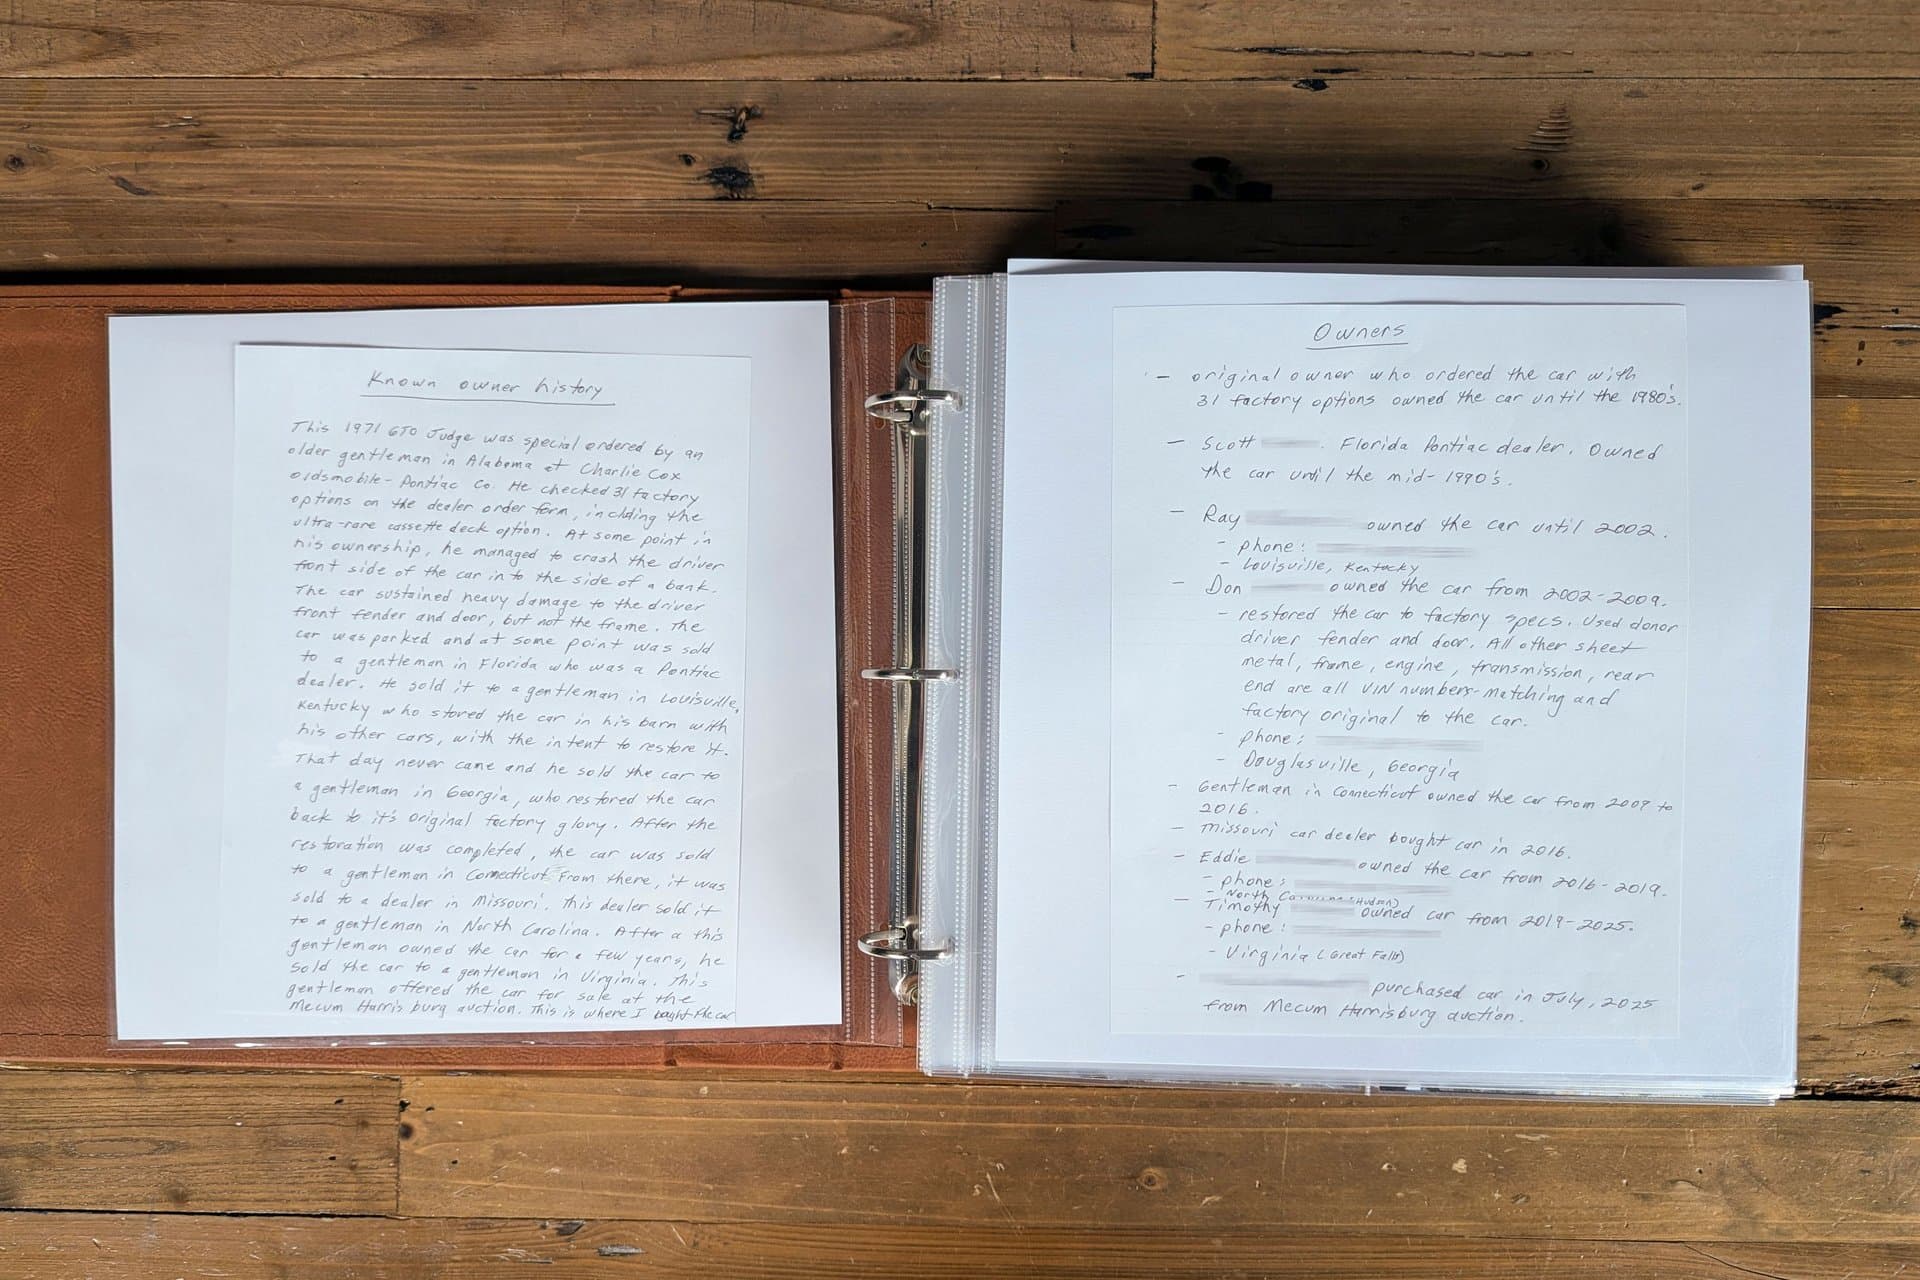 Known owner history
This 1971 GTO Judge was special ordered by an
older gentleman in Alabama at Charlie Cox
oldsmobile-Pontiac Co. He checked 31 factory
options on the dealer order form, including the
ultra-rare cassette deck option. At some point in
his ownership, he managed to crash the driver
front side of the car in to the side of a bank.
The car sustained heavy damage to the driver
front fender and door, but not the frame. The
car was parked and at some point was sold
to a gentleman in Florida who was a Pontiac
dealer. He sold it to a gentleman in Louisville,
Kentucky who stored the car in his barn with
his other cars, with the intent to restore it.
That day never came and he sold the car to
a gentleman in Georgia, who restored the car
back to it's original factory glory. After the
restoration was completed, the car was sold
to a gentleman in Connecticut. From there, it was
sold to a dealer in Missouri. This dealer sold it
to a gentleman in North Carolina. After a this
gentleman owned the car for a few years, he
sold the car to a gentleman in Virginia. This
gentleman offered the car for sale at the
Mecum Harrisburg auction. This is where I bought the car
Owners
- original owner who ordered the car with
31 factory options owned the car until the 1980's.
- Scott . Florida Pontiac dealer. Owned
the car until the mid-1990's.
- Ray owned the car until 2002.
- phone:
- Louisville, Kentucky
- Don owned the car from 2002-2009.
- restored the car to factory specs. Used donor
driver fender and door. All other sheet
metal, frame, engine, transmission, rear
end are all VIN numbers-matching and
factory original to the car.
- phone:
- Douglasville, Georgia
- Gentleman in Connecticut owned the car from 2009 to
2016.
- Missouri car dealer bought car in 2016.
- Eddie owned the car from 2016-2019.
- phone:
- North Carolina (Hudson)
- Timothy owned car from 2019-2025.
- phone:
- Virginia (Great Falls)
- purchased car in July, 2025
from Mecum Harrisburg auction.